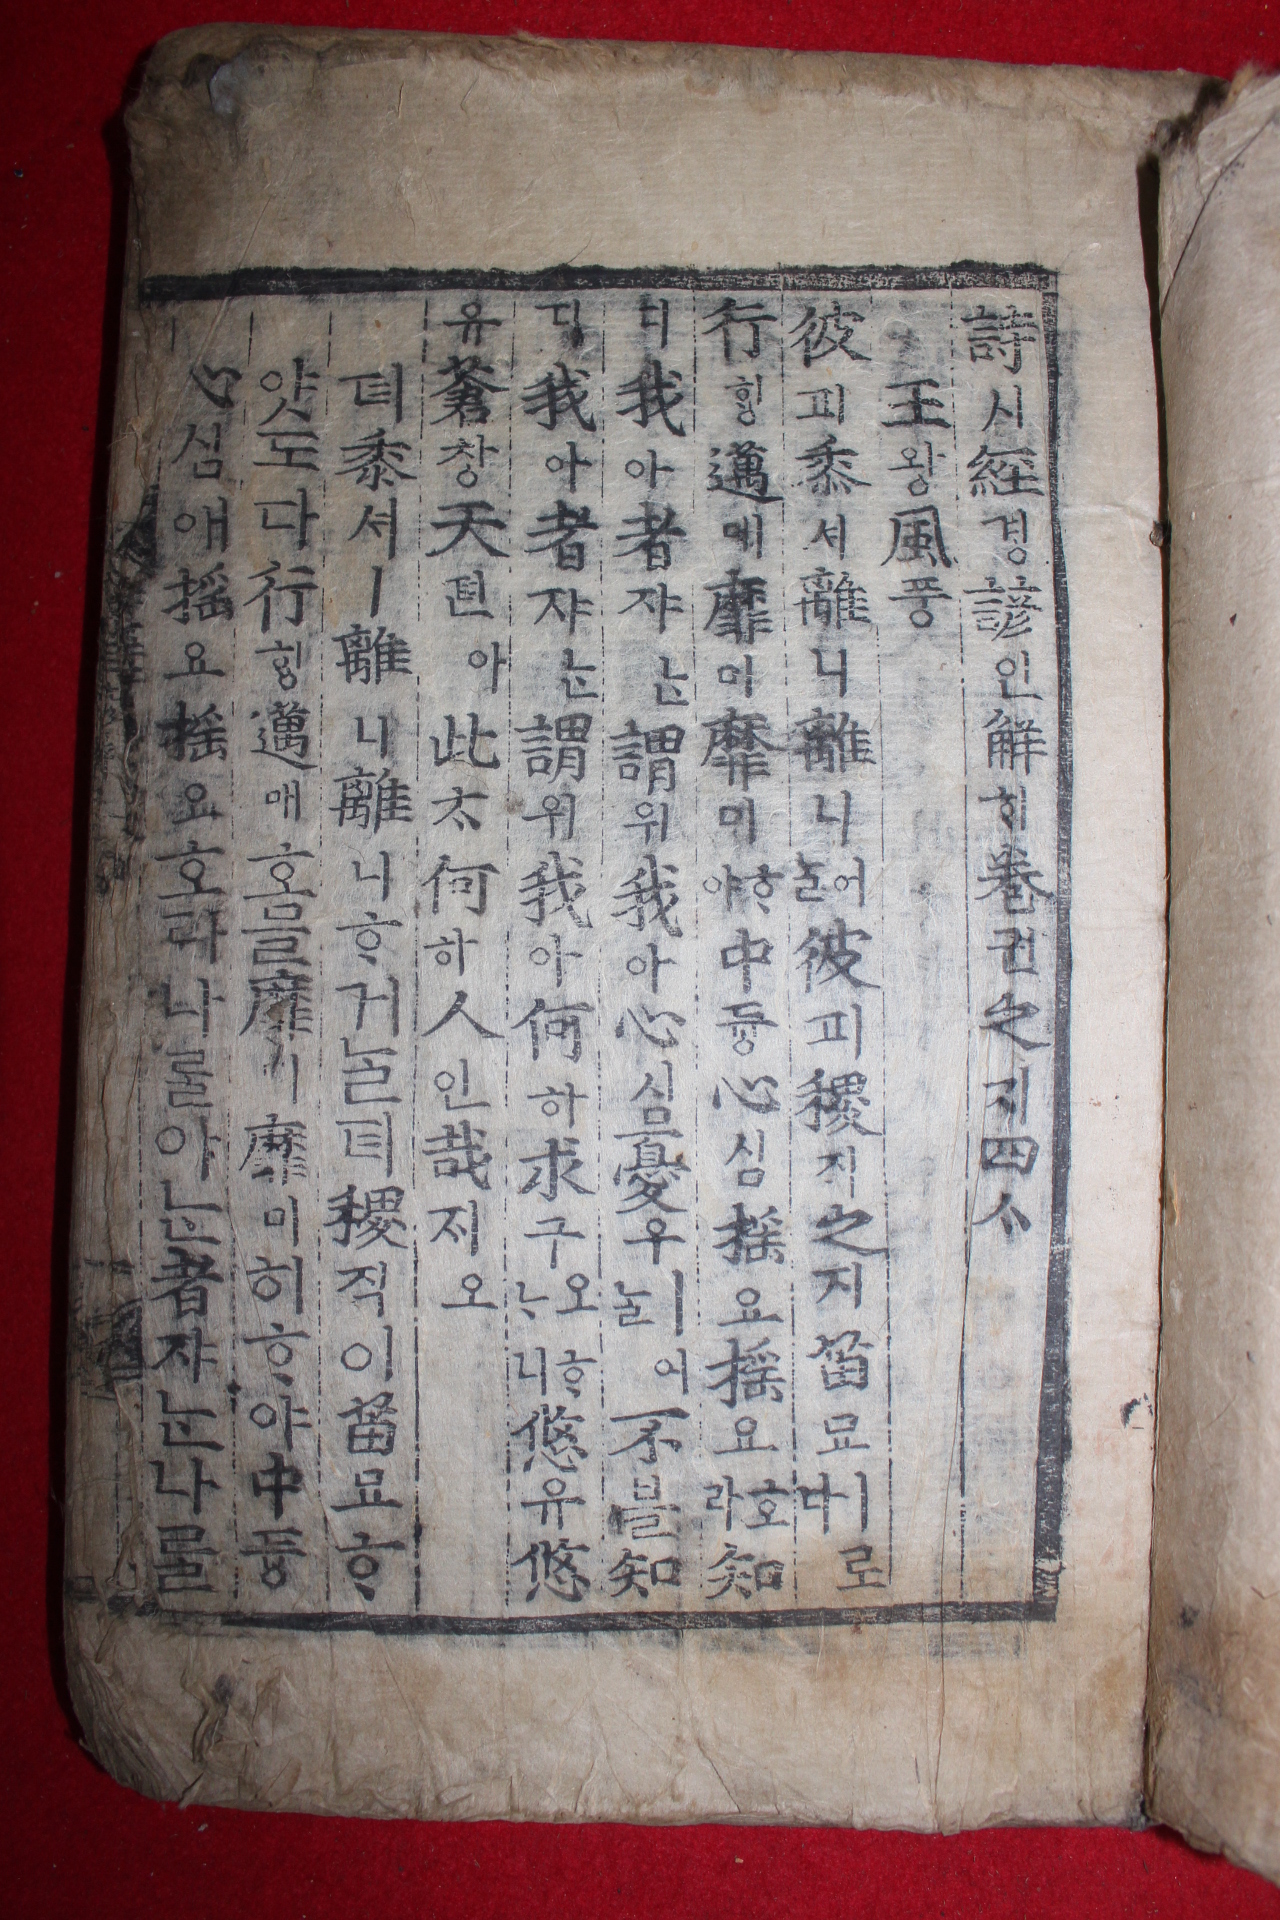 詩시經경諺언解ᄒᆡ卷권之지四ᄉᆞ
王왕風풍
彼피黍셔離니離니어ᄂᆞᆯ彼피稷직之지苗묘ㅣ로다
行ᄒᆡᆼ邁매靡미靡미ᄒᆞ야中듕心심搖요搖요호라知
디我아者쟈ᄂᆞᆫ謂위我아心심憂우ㅣ어ᄂᆞᆯ不불知
디我아者쟈ᄂᆞᆫ謂위我아何하求구오ᄒᆞᄂᆞ니悠유悠
유蒼창天텬아此ᄎᆞ何하人인哉ᄌᆡ오
뎌黍셔ㅣ離니離니ᄒᆞ거ᄂᆞᆯ뎌稷직이苗묘ᄒᆞ
얏도다行ᄒᆡᆼ邁매홈을靡미靡미히ᄒᆞ야中듕
心심애搖요搖요호라나ᄅᆞᆯ아ᄂᆞᆫ者쟈ᄂᆞᆫ나ᄅᆞᆯ